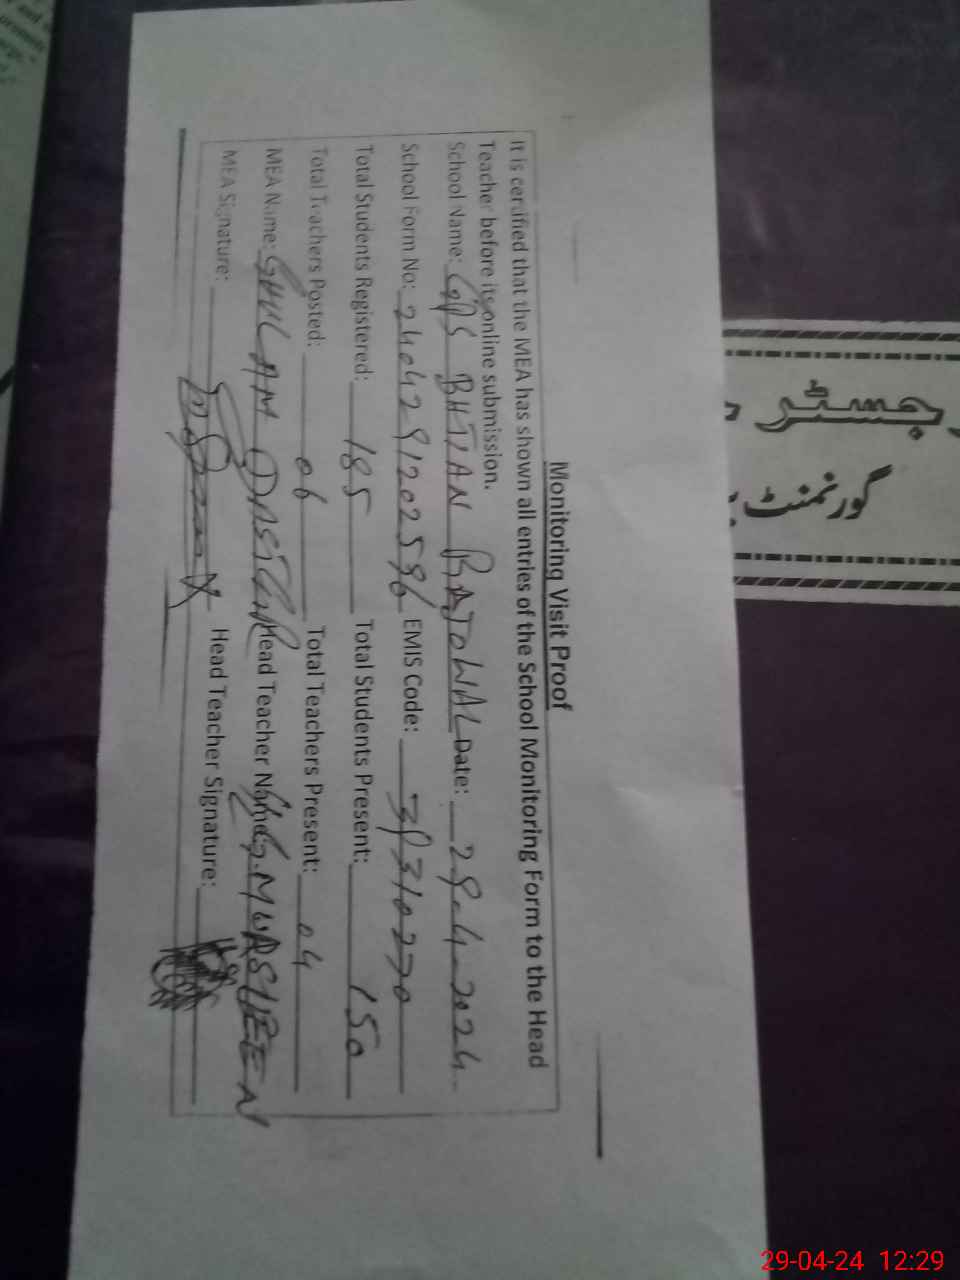 Monitoring Visit Proof
It is certified that the MEA has shown all entries of the School Monitoring Form to the Head
Teacher before its online submission.
School Name: GPS BHTIAN BAJOWAL Date: 29-4-2024
School Form No: 24042912025 EMIS Code: 310270
Total Students Registered: 185 Total Students Present: 150
Total Teachers Posted: 06 Total Teachers Present: 04
MEA Name: GHULAM DASTGIR Head Teacher Name:
MEA Signature: Head Teacher Signature:
رجسٹر
گورنمنٹ
29-04-24 12:29